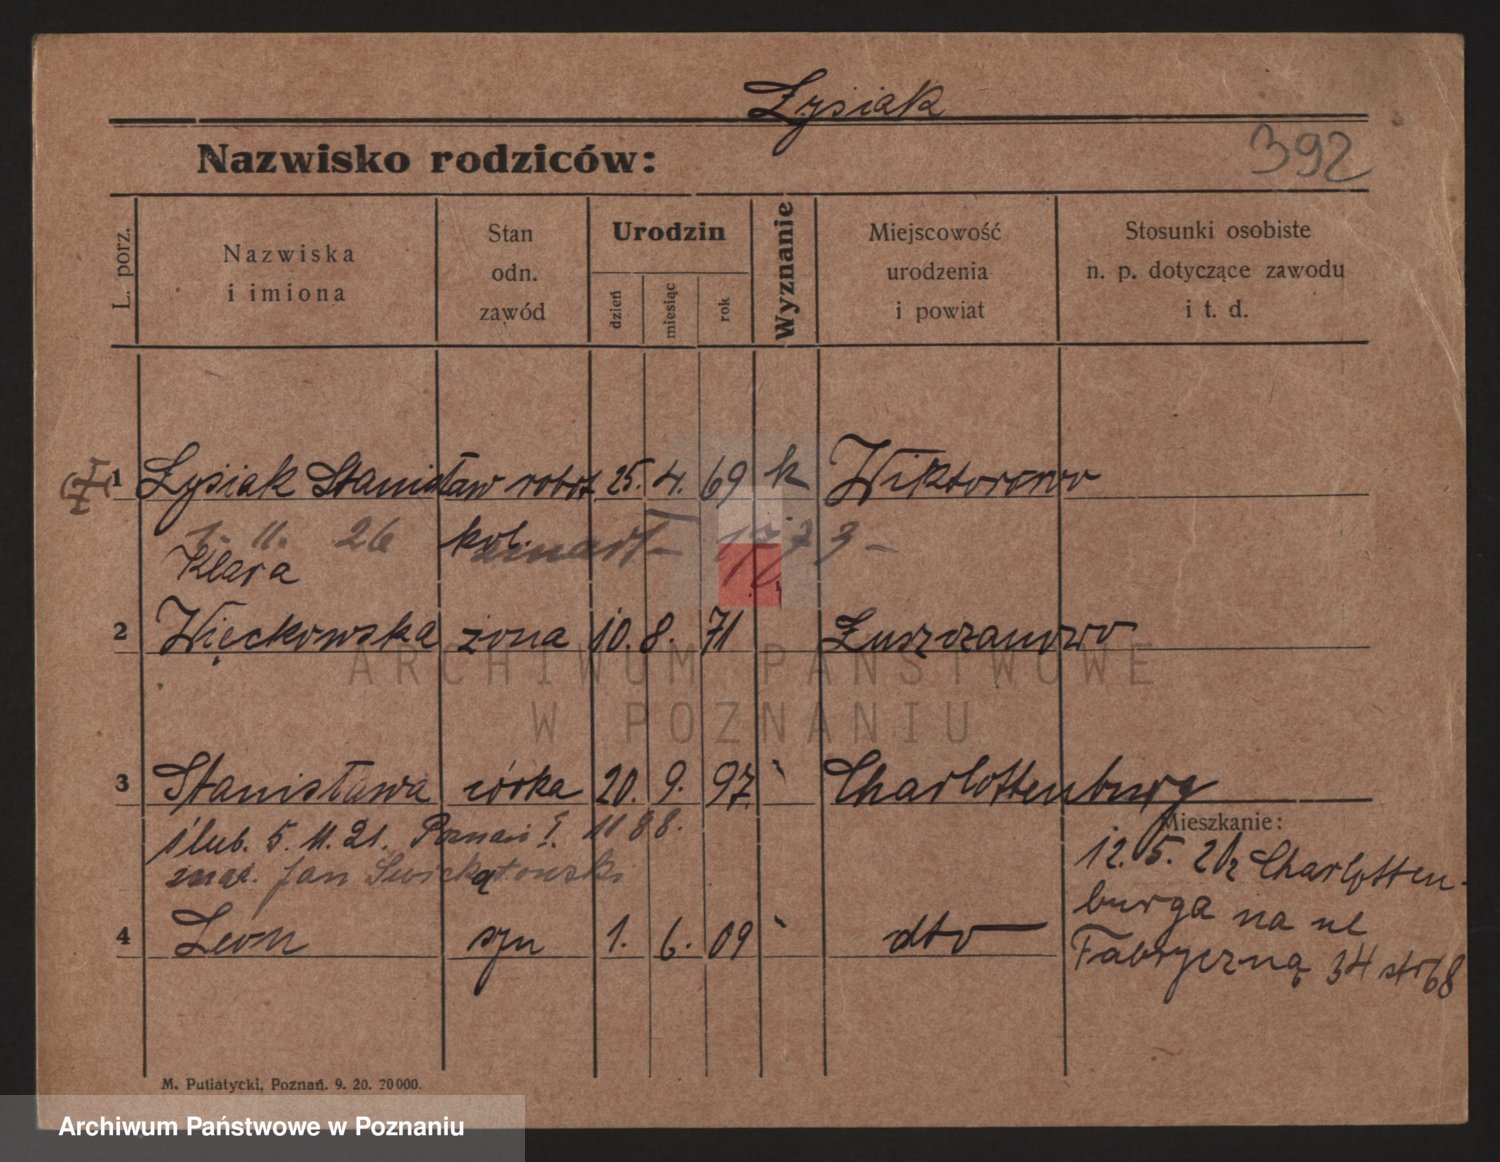 Łysiak
Nazwisko rodziców:
392
L. porz.
Nazwiska
i imiona
Stan
odn.
zawód
Urodzin
dzień
miesiąc
rok
Wyznanie
Miejscowość
urodzenia
i powiat
Stosunki osobiste
n. p. dotyczące zawodu
i t. d.
1 Łysiak Stanisław robot 25. 4. 69 k Wiktorowo
1. 11. 26 kol.
Klara
2 Więckowska żona 10. 8. 71 Łuszczanowo
ARCHIWUM PAŃSTWOWE
W POZNANIU
3 Stanisława córka 20. 9. 97 Charlottenburg
ślub. 5. 11. 21. Poznań I. 1188.
Jan
4 Leon syn 1. 6. 09 dto
Mieszkanie:
12. 5. 21 z Charlotten-
burga na ul
Fabryczną 34 str 68
M. Putiatycki, Poznań. 9. 20. 20000.
Archiwum Państwowe w Poznaniu